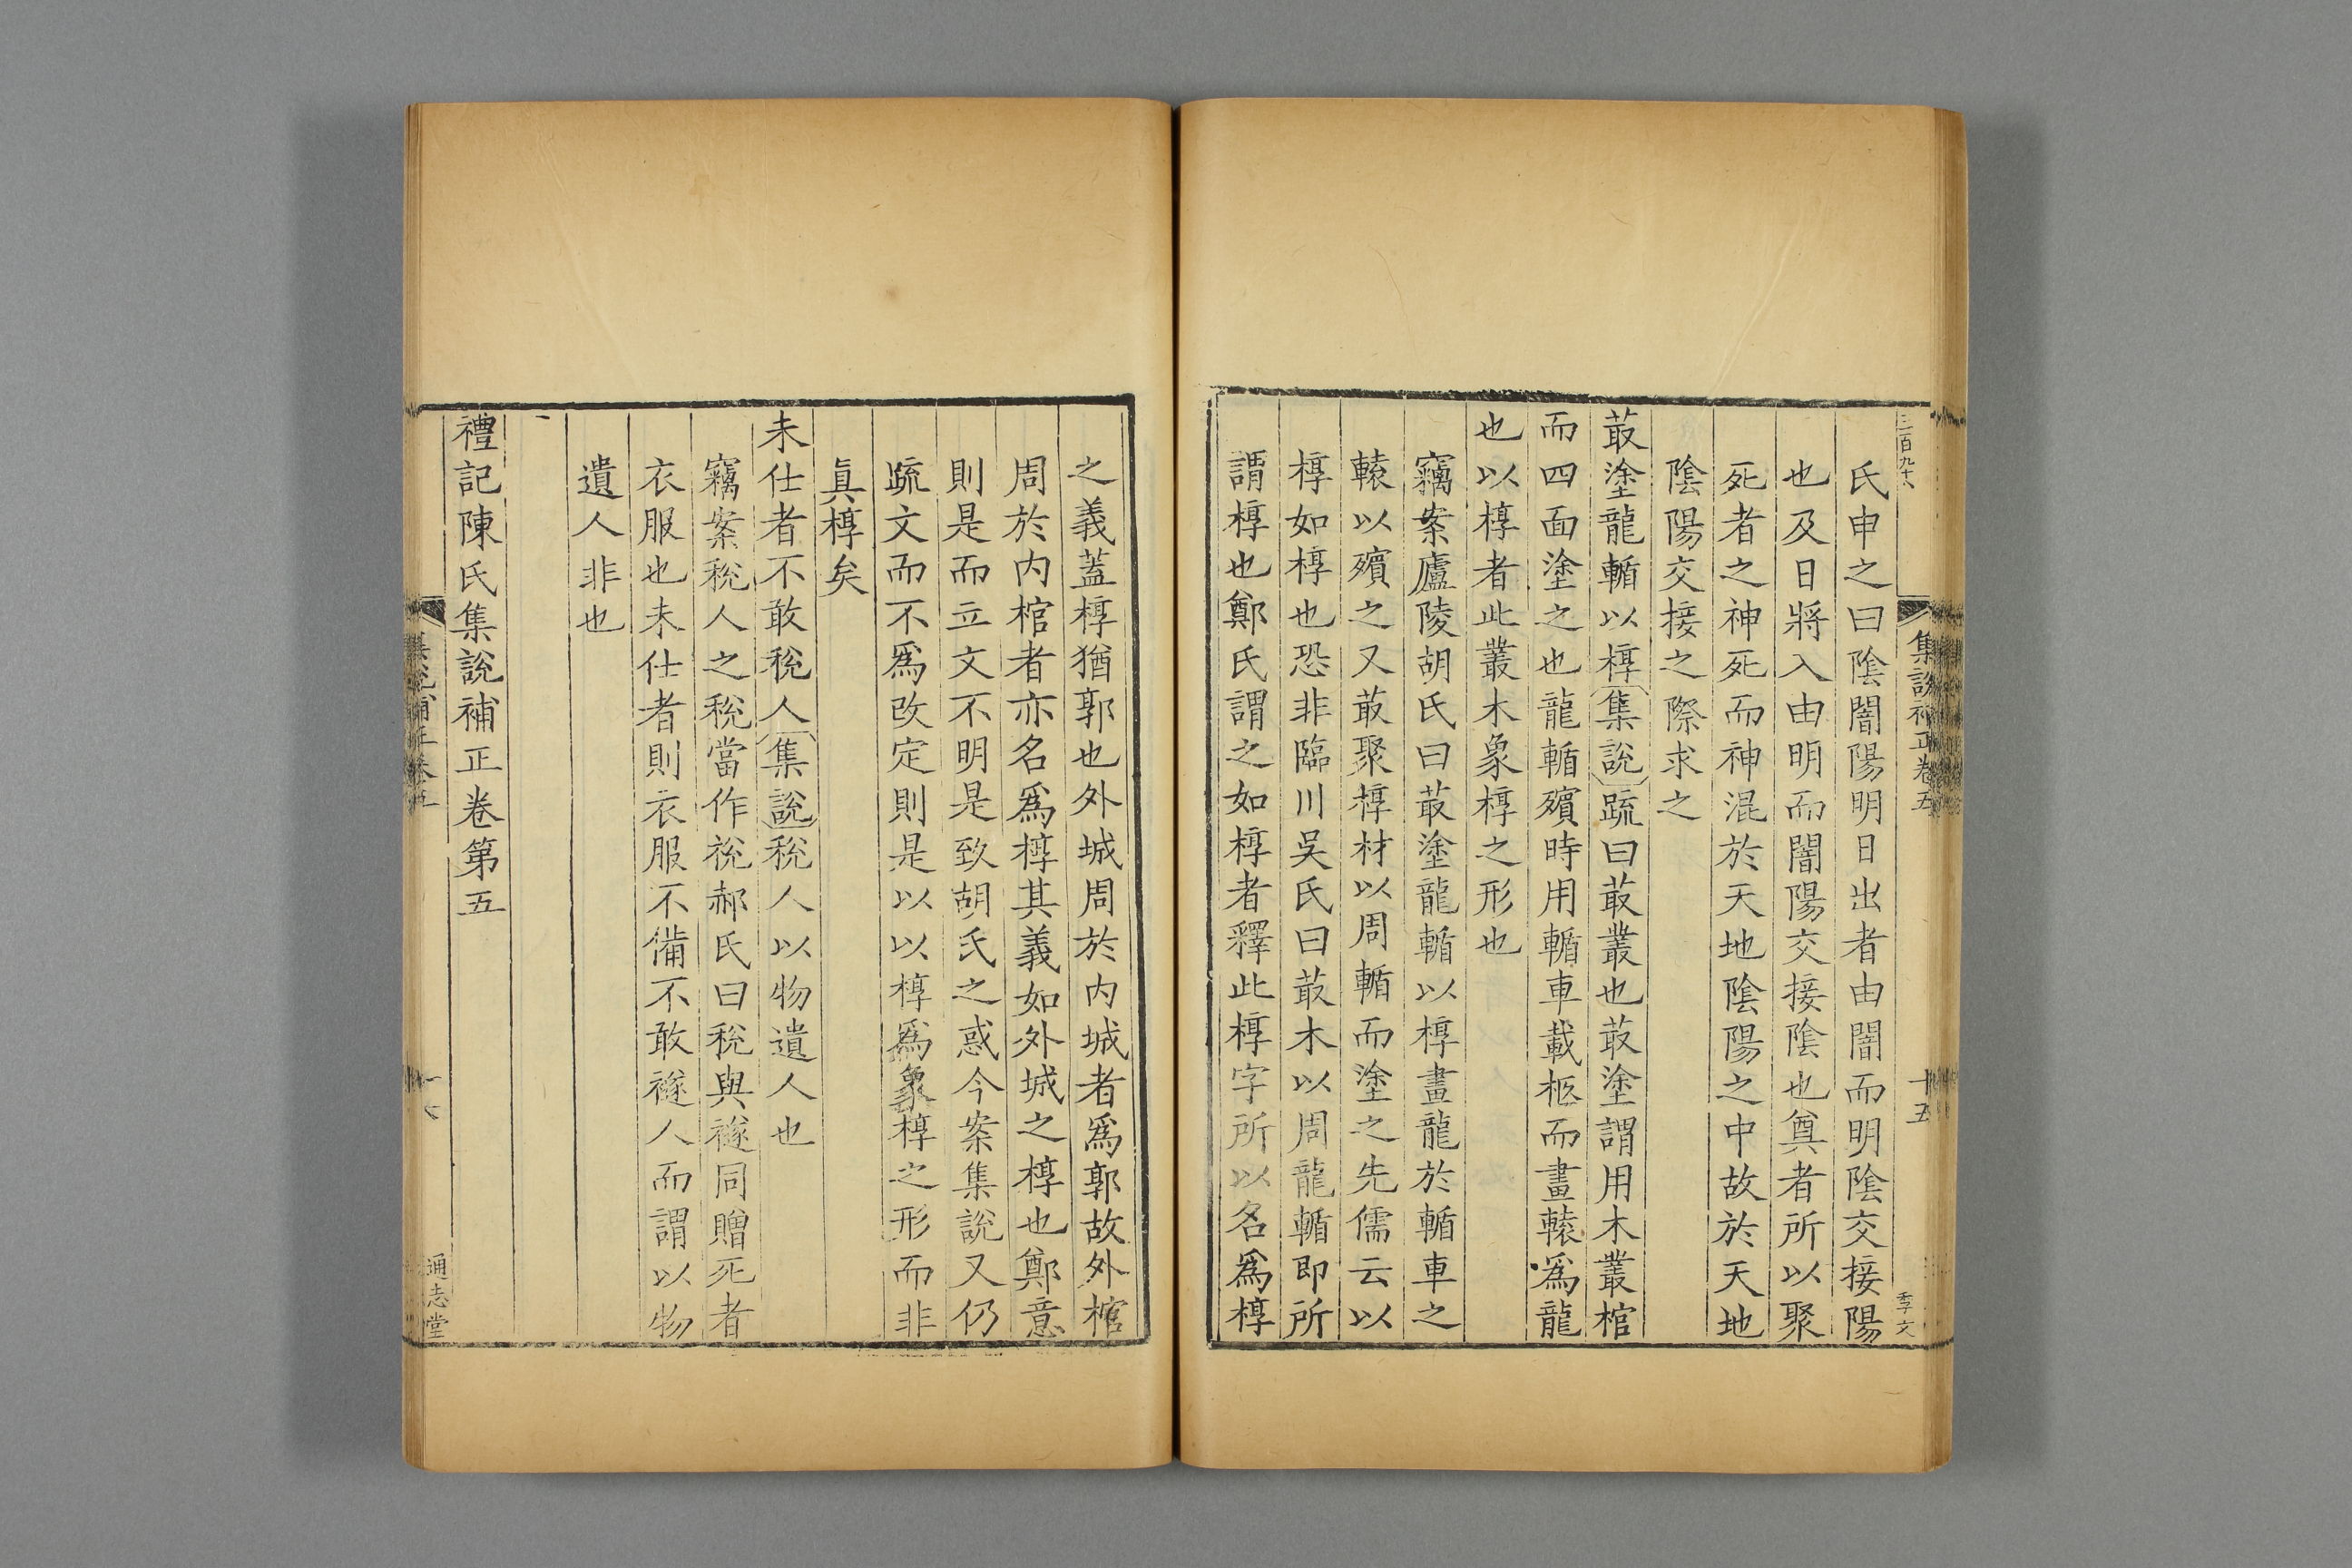 三百九十八
集說補正卷五
十五
季文
氏申之曰陰闇陽明日出者由闇而明陰交接陽
也及日將入由明而闇陽交接陰也奠者所以聚
死者之神死而神混於天地陰陽之中故於天地
陰陽交接之際求之
菆塗龍輴以椁集說疏曰菆叢也菆塗謂用木叢棺
而四面塗之也龍輴殯時用輴車載柩而畫轅爲龍
也以椁者此叢木象椁之形也
竊案廬陵胡氏曰菆塗龍輴以椁畫龍於輴車之
轅以殯之又菆聚椁材以周輴而塗之先儒云以
椁如椁也恐非臨川吳氏曰菆木以周龍輴即所
謂椁也鄭氏謂之如椁者釋此椁字所以名爲椁
之義蓋椁猶郭也外城周於内城者爲郭故外棺
周於内棺者亦名爲椁其義如外城之椁也鄭意
則是而立文不明是致胡氏之惑今案集說又仍
疏文而不爲改定則是以以椁爲象椁之形而非
眞椁矣
未仕者不敢稅人集說稅人以物遺人也
竊案稅人之稅當作祱郝氏曰稅與襚同贈死者
衣服也未仕者則衣服不備不敢襚人而謂以物
遺人非也
禮記陳氏集說補正卷第五
通志堂